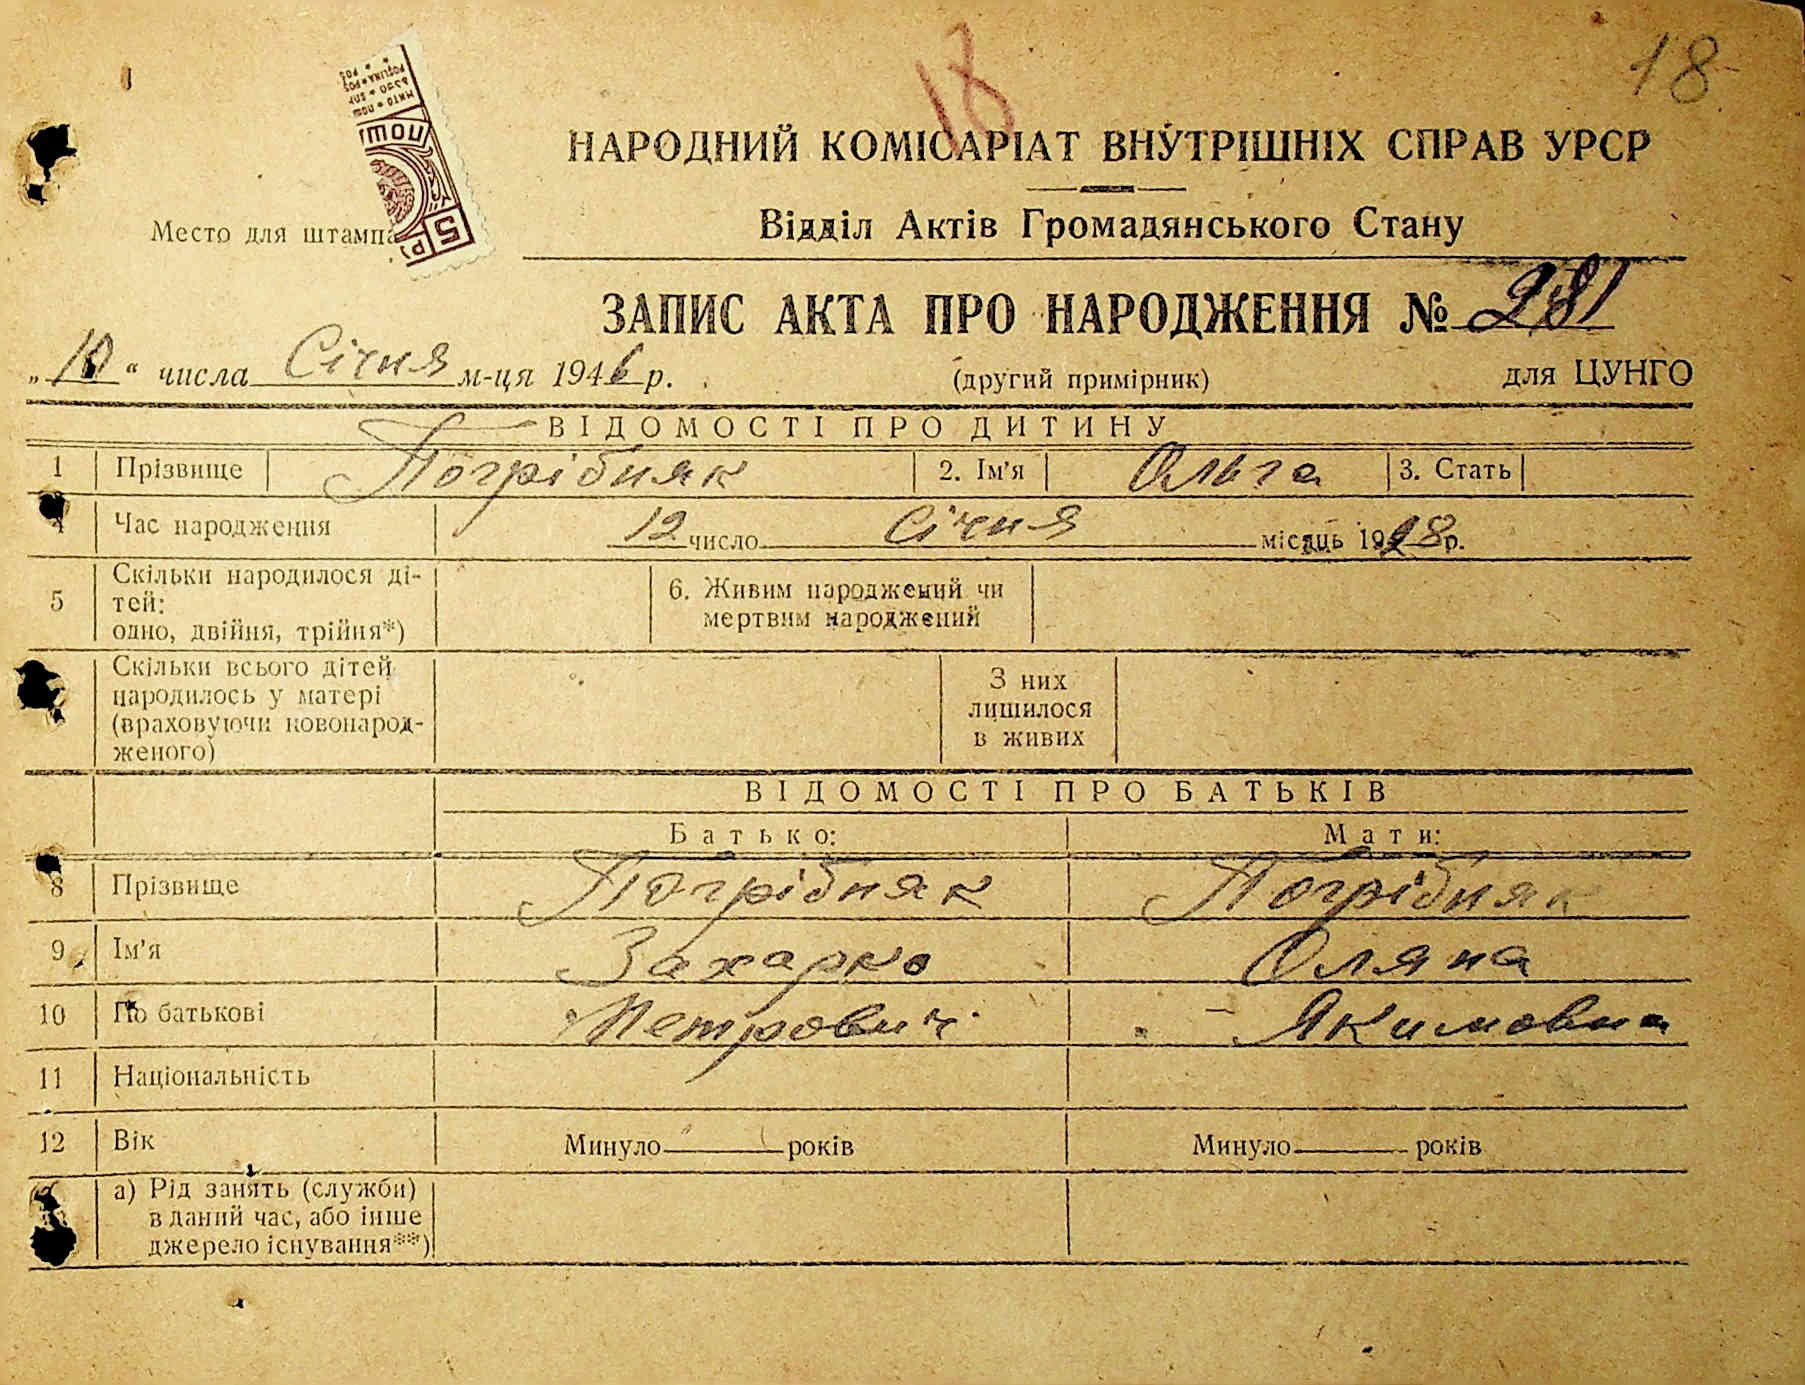 18
18
НАРОДНИЙ КОМІСАРІАТ ВНУТРІШНІХ СПРАВ УРСР
Відділ Актів Громадянського Стану
Место для штампа
5
ЗАПИС АКТА ПРО НАРОДЖЕННЯ № 281
„10“ числа Січня м-ця 1946 р. (другий примірник) для ЦУНГО
ВІДОМОСТІ ПРО ДИТИНУ
1 Прізвище Погрібняк 2. Ім'я Ольга 3. Стать
4 Час народження 12 число Січня місяць 1928 р.
Скільки народилося ді-
5 тей:
одно, двійня, трійня*)
6. Живим народжений чи
мертвим народжений
Скільки всього дітей
народилось у матері
(враховуючи новонарод-
женого)
З них
лишилося
в живих
ВІДОМОСТІ ПРО БАТЬКІВ
Батько: Мати:
8 Прізвище Погрібняк Погрібняк
9 Ім'я Захарко Оляна
10 По батькові Петрович Якимовна
11 Національність
12 Вік Минуло років Минуло років
а) Рід занять (служби)
в даний час, або інше
джерело існування**)